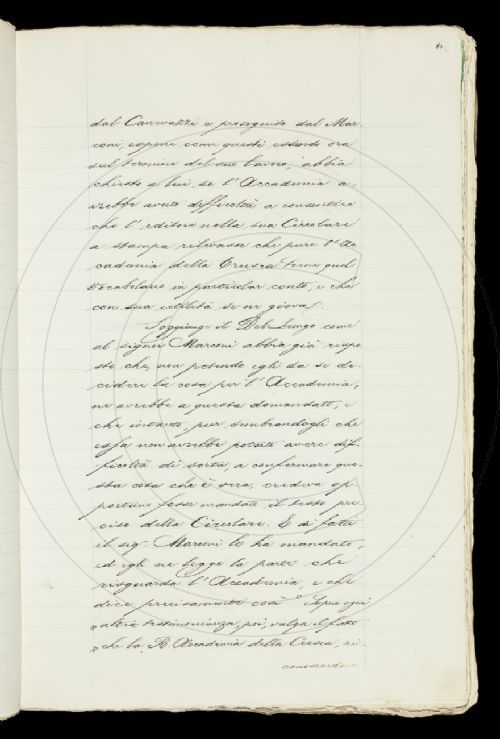 81.
dal Canevazzi e proseguito dal Mar-
coni, espone come questi essendo ora
sul termine del suo lavoro, abbia
chiesto a lui se l'Accademia a-
vrebbe avuto difficoltà a consentire
che l'editore nella sua Circolare
a stampa rilevasse che pure l'Ac-
cademia della Crusca tiene quel
Vocabolario in particolar conto, e che
con sua utilità se ne giova.
Soggiunge il Del Lungo come
al signor Marconi abbia già rispo-
sto che, non potendo egli da se de-
cidere la cosa per l'Accademia,
ne avrebbe a questa domandato, e
che intanto, pur sembrandogli che
essa non avrebbe potuto avere dif-
ficoltà di sorta a confermare que-
sta cosa che è vera, credeva op-
portuno fosse mandato il testo pre-
ciso della Circolare. E di fatti
il sig. Marconi lo ha mandato,
ed egli ne legge la parte che
risguarda l'Accademia e che
dice precisamente così " Sopra ogni
" altra testimonianza, poi, valga il fatto
" che la R. Accademia della Crusca, ri-
conoscendo